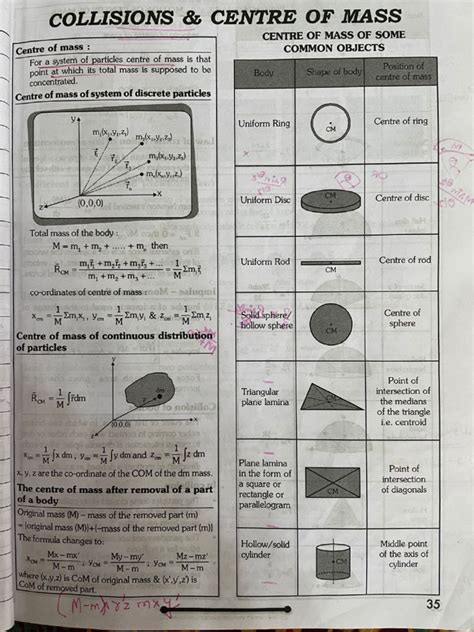 COLLISIONS & CENTRE OF MASS
Centre of mass :
For a system of particles centre of mass is that
point at which its total mass is supposed to be
concentrated.
Centre of mass of system of discrete particles
y
m₁(x₁,y₁,z₁)
m₂(x₂,y₂,z₂)
x
z
(0,0,0)
Total mass of the body :
M = m₁ + m₂ + ..... + mₙ then
R⃗_CM = (m₁r⃗₁ + m₂r⃗₂ + m₃r⃗₃ + ...)/(m₁ + m₂ + m₃ + ...) = 1/M Σmᵢr⃗ᵢ
co-ordinates of centre of mass :
x_cm = 1/M Σmᵢxᵢ , y_cm = 1/M Σmᵢyᵢ & z_cm = 1/M Σmᵢzᵢ
Centre of mass of continuous distribution
of particles
y
dm
R⃗_CM = 1/M ∫r⃗dm
(0,0,0)
x
z
x_cm = 1/M ∫x dm , y_cm = 1/M ∫y dm and z_cm = 1/M ∫z dm
x, y, z are the co-ordinate of the COM of the dm mass.
The centre of mass after removal of a part
of a body
Original mass (M) – mass of the removed part (m)
= {original mass (M)}+{–mass of the removed part (m)}
The formula changes to:
x_CM = (Mx – mx')/(M – m) ; y_CM = (My – my')/(M – m) ; z_CM = (Mz – mz')/(M – m)
where (x,y,z) is CoM of original mass & (x',y',z') is
CoM of removed part.
CENTRE OF MASS OF SOME
COMMON OBJECTS
Body Shape of body Position of centre of mass
Uniform Ring CM Centre of ring
Uniform Disc CM Centre of disc
Uniform Rod CM Centre of rod
Solid sphere/ hollow sphere CM Centre of sphere
Triangular plane lamina CM Point of intersection of the medians of the triangle i.e. centroid
Plane lamina in the form of a square or rectangle or parallelogram CM Point of intersection of diagonals
Hollow/solid cylinder CM Middle point of the axis of cylinder
35